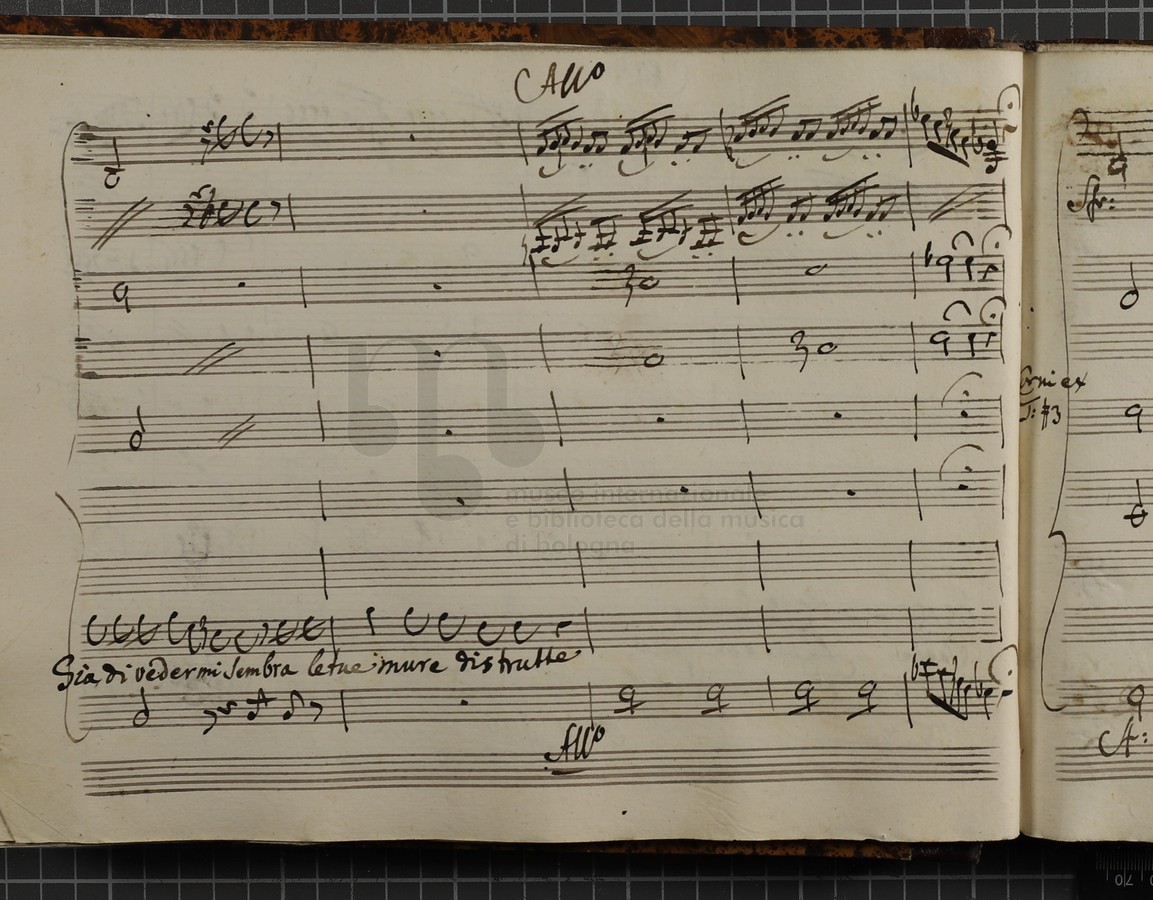 All⁰
Sfr:
Corni ex
museo internazionale
e biblioteca della musica
di bologna
Gia di vedermi sembra le tue mure distrutte
All⁰
A:
70